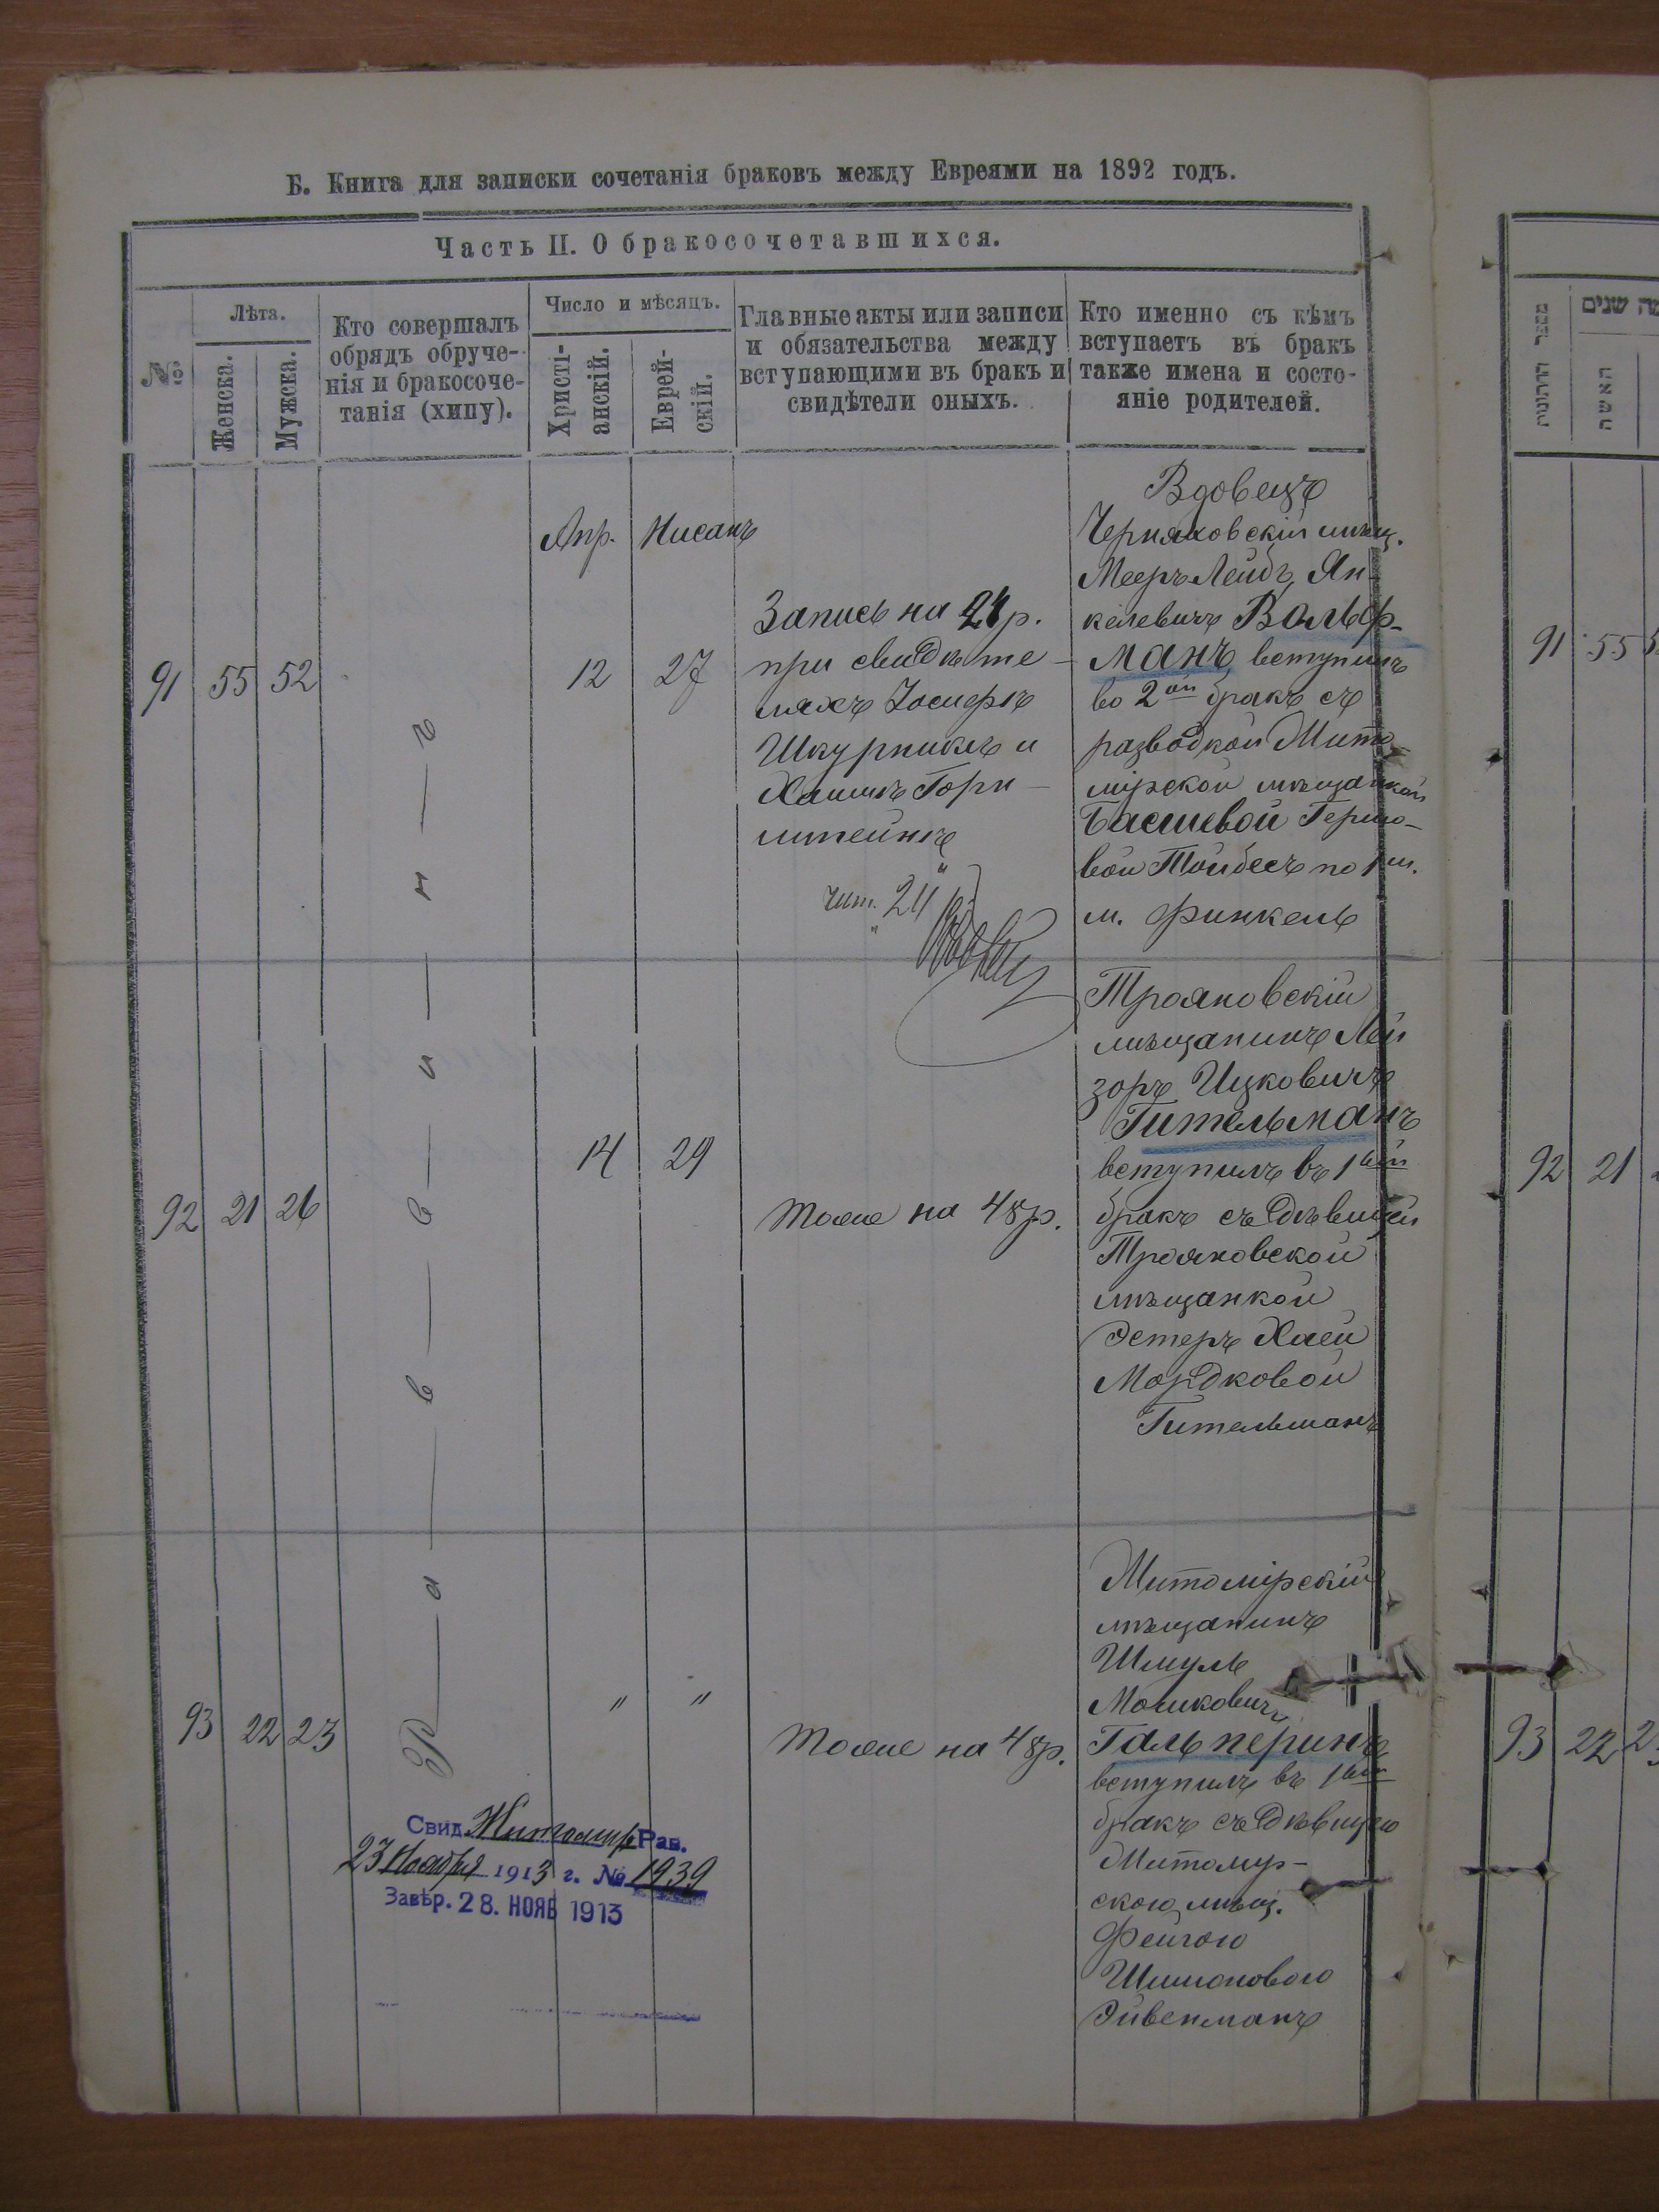 Б. Книга для записки сочетанія браковъ между Евреями на 1892 годъ.
Часть II. О бракосочетавшихся.
№
Лѣта.
Женска.
Мужска.
Кто совершалъ
обрядъ обруче-
нія и бракосоче-
танія (хипу).
Число и мѣсяцъ.
Христі-
анскій.
Еврей-
скій.
Главные акты или записи
и обязательства между
вступающими въ бракъ и
свидѣтели оныхъ.
Кто именно съ кѣмъ
вступаетъ въ бракъ
также имена и состо-
яніе родителей.
Апр. Нисанъ
91 55 52
12 27
Запись на 24 р.
при свидѣте-
ляхъ Іосифѣ
Шкурникъ и
Хаимѣ Горн-
штейнъ
чит. "24"
Вдовецъ
Черняховскій мѣщ.
Мееръ Лейбъ Ян-
келевичъ Вольф-
манъ вступилъ
во 2ой бракъ съ
разводкой Жито-
мірской мѣщанкой
Басшевой Гершо-
вой Тойбесъ по 1 ш.
м. Финкель
92 21 26
14 29
тоже на 48 р.
Трояновскій
мѣщанинъ Лей
зоръ Ицковичъ
Гительманъ
вступилъ въ 1ый
бракъ съ дѣвицей
Трояновской
мѣщанкой
Эстеръ Хаей
Мордковой
Гительманъ
93 22 23
" "
тоже на 48 р.
Житомірскій
мѣщанинъ
Шмуль
Мошковичъ
Гальперинъ
вступилъ въ 1ый
бракъ съ дѣвицею
Житомір-
скою мѣщ.
Фейгою
Шимоновою
Эйвенманъ
Р—а—в—в—и—н—ъ
Свид. Житомир Рав.
23 Ноября 1913 г. № 1939
Завѣр. 28. НОЯБ 1913
מספר
האשה
91 55
92 21
93 22